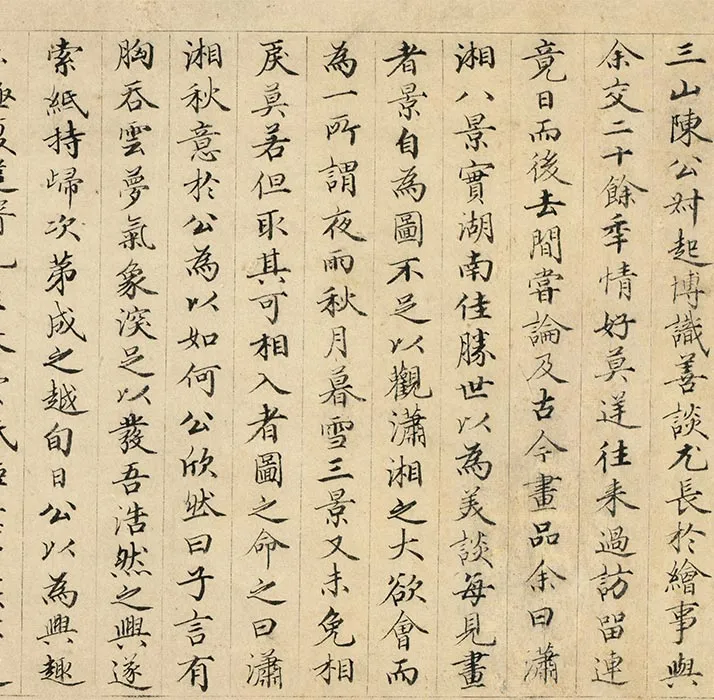 三山陳公對起博識善談尤長於繪事與
余交二十餘年情好莫逆往来過訪留連
竟日而後去間嘗論及古今畫品余曰瀟
湘八景實湖南佳勝世以為美談每見畫
者景自為圖不足以觀瀟湘之大欲會而
為一所謂夜雨秋月暮雪三景又未免相
戾莫若但取其可相入者圖之命之曰瀟
湘秋意於公為以如何公欣然曰子言有
胸吞雲夢氣象深足以發吾浩然之興遂
索紙持歸次第成之越旬日公以為興趣